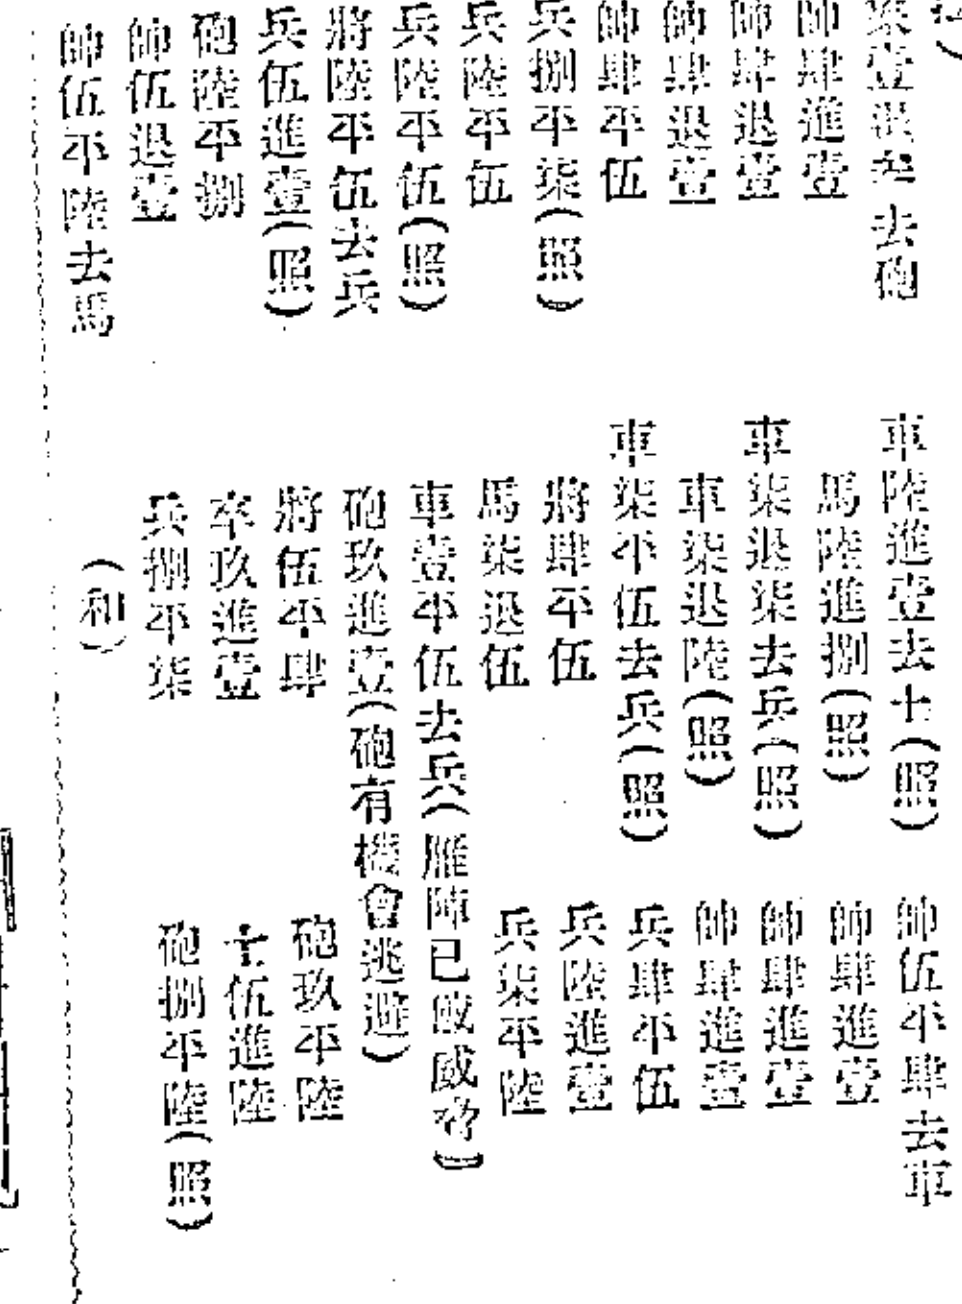 柒壹退叁去砲
帥肆進壹
帥肆退壹
帥肆退壹
帥肆平伍
兵捌平柒(照)
兵陸平伍
兵陸平伍(照)
將陸平伍去兵
兵伍進壹(照)
砲陸平捌
帥伍退壹
帥伍平陸去馬
車陸進壹去士(照)
馬陸進捌(照)
車柒退柒去兵(照)
車柒退陸(照)
車柒平伍去兵(照)
將肆平伍
馬柒退伍
車壹平伍去兵(雁陣已成威脅)
砲玖進壹(砲有機會逃避)
將伍平肆
卒玖進壹
兵捌平柒
(和)
帥伍平肆去車
帥肆進壹
帥肆進壹
帥肆進壹
兵肆平伍
兵陸進壹
兵柒平陸
砲玖平陸
士伍進陸
砲捌平陸(照)